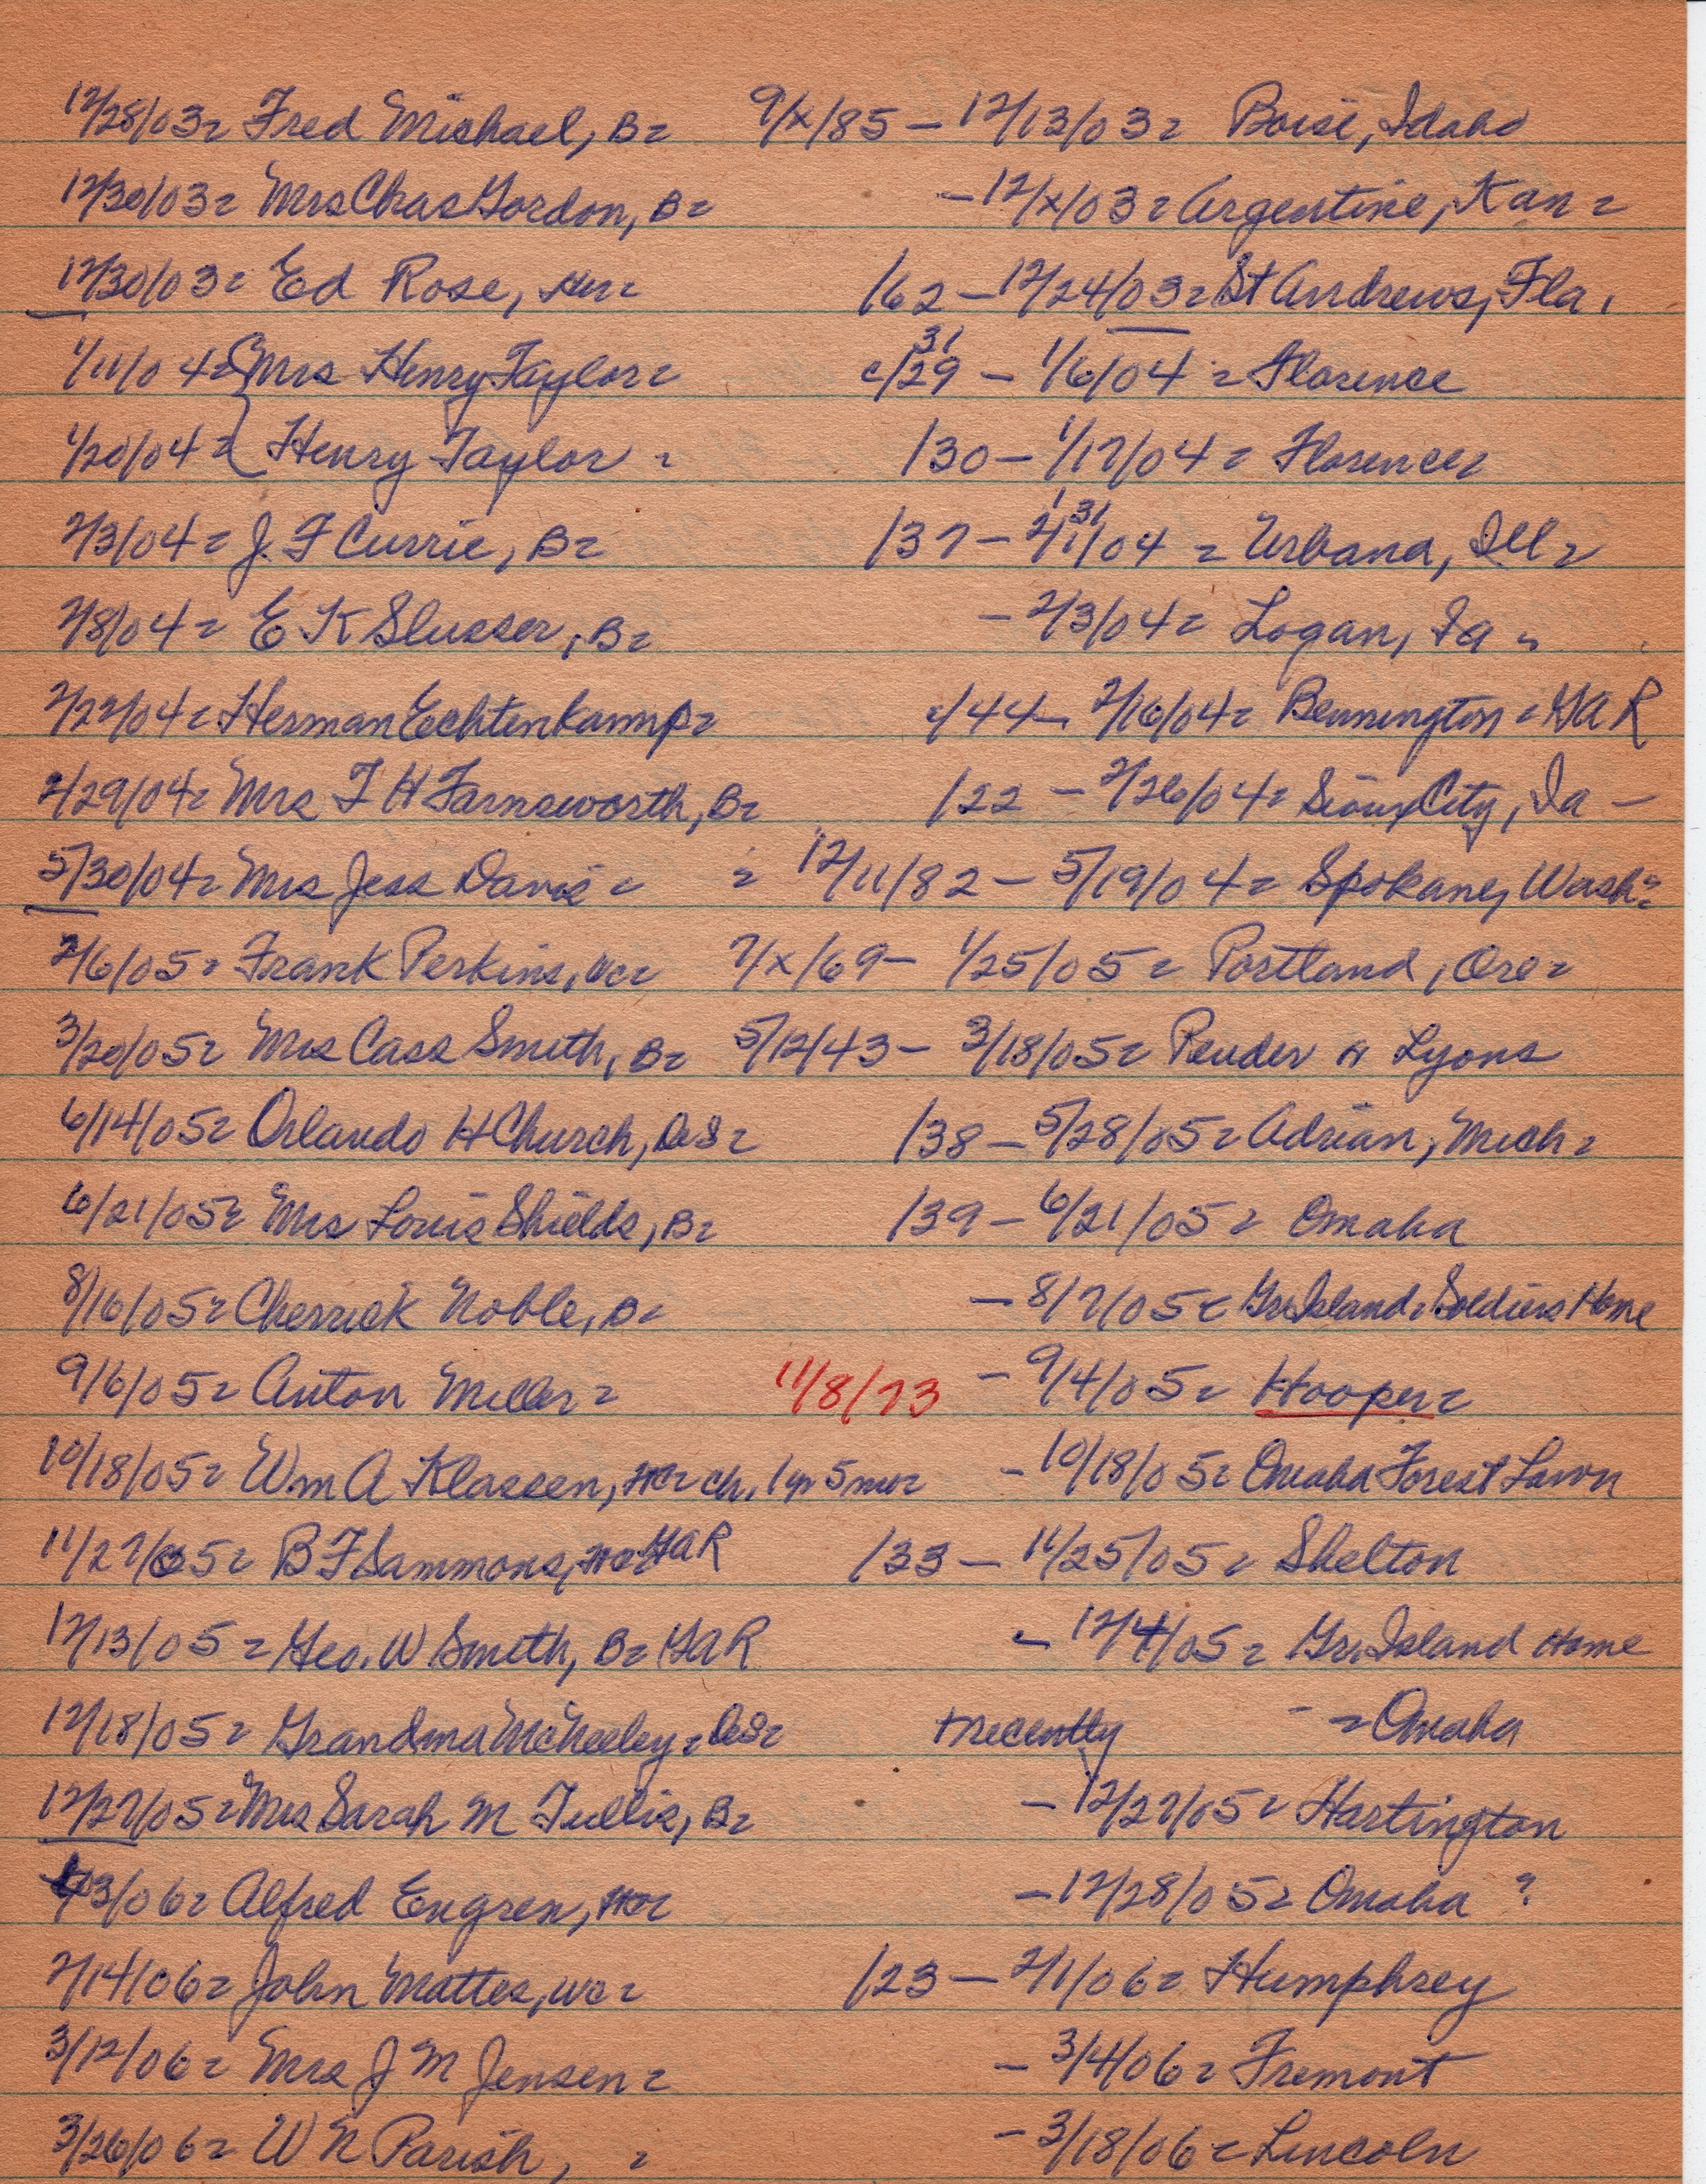 12/28/03= Fred Michael, B= 9/x/85 - 12/13/03= Boise, Idaho
12/30/03= Mrs Chas Gordon, B= - 12/x/03= Argentine, Kan=
12/30/03= Ed Rose, Her= /62 - 12/24/03= St Andrews, Fla.
31
1/11/04= {Mrs Henry Taylor= c/29 - 1/6/04 = Florence
1/20/04= {Henry Taylor = /30 - 1/17/04= Florence=
1 31
2/3/04= J. F Currie, B= /37 - 2/1/04 = Urbana, Ill=
2/8/04= E K Slusser, B= - 2/3/04= Logan, Ia =
2/22/04= Herman Echtenkamp= c/44 - 2/16/04= Bennington = GAR
2/29/04= Mrs F H Farnsworth, B= /22 - 2/26/04= Sioux City, Ia -
5/30/04= Mrs Jess Davis = = 12/11/82 - 5/19/04= Spokane, Wash=
2/6/05= Frank Perkins, WC= 7/x/69 - 1/25/05= Portland, Ore=
3/20/05= Mrs Cass Smith, B= 5/12/43 - 3/18/05= Pender = Lyons
6/14/05= Orlando H Church, DeS= /38 - 5/28/05= Adrian, Mich=
6/21/05= Mrs Louis Shields, B= /39 - 6/21/05= Omaha
8/16/05= Cherrick Noble, B= - 8/7/05= Gr. Island = Soldiers Home
9/6/05= Anton Miller= 11/8/73 - 9/4/05= Hooper=
10/18/05= Wm A Klaseen, HC= ch, 1 yr 5 mo= - 10/18/05= Omaha Forest Lawn
11/27/05= B F Sammons, HC= GAR /33 - 11/25/05= Shelton
12/13/05= Geo. W Smith, B= GAR - 12/4/05= Gr. Island Home
12/18/05= Grandma McNeeley= DeS= +recently - = Omaha
12/27/05= Mrs Sarah M Tullis, B= - 12/27/05= Hartington
1/3/06= Alfred Engren, HC= - 12/28/05= Omaha ?
2/14/06= John Mattes, WC= /23 - 2/1/06= Humphrey
3/12/06= Mrs J M Jensen= - 3/4/06= Fremont
3/26/06= W N Parish, = - 3/18/06= Lincoln